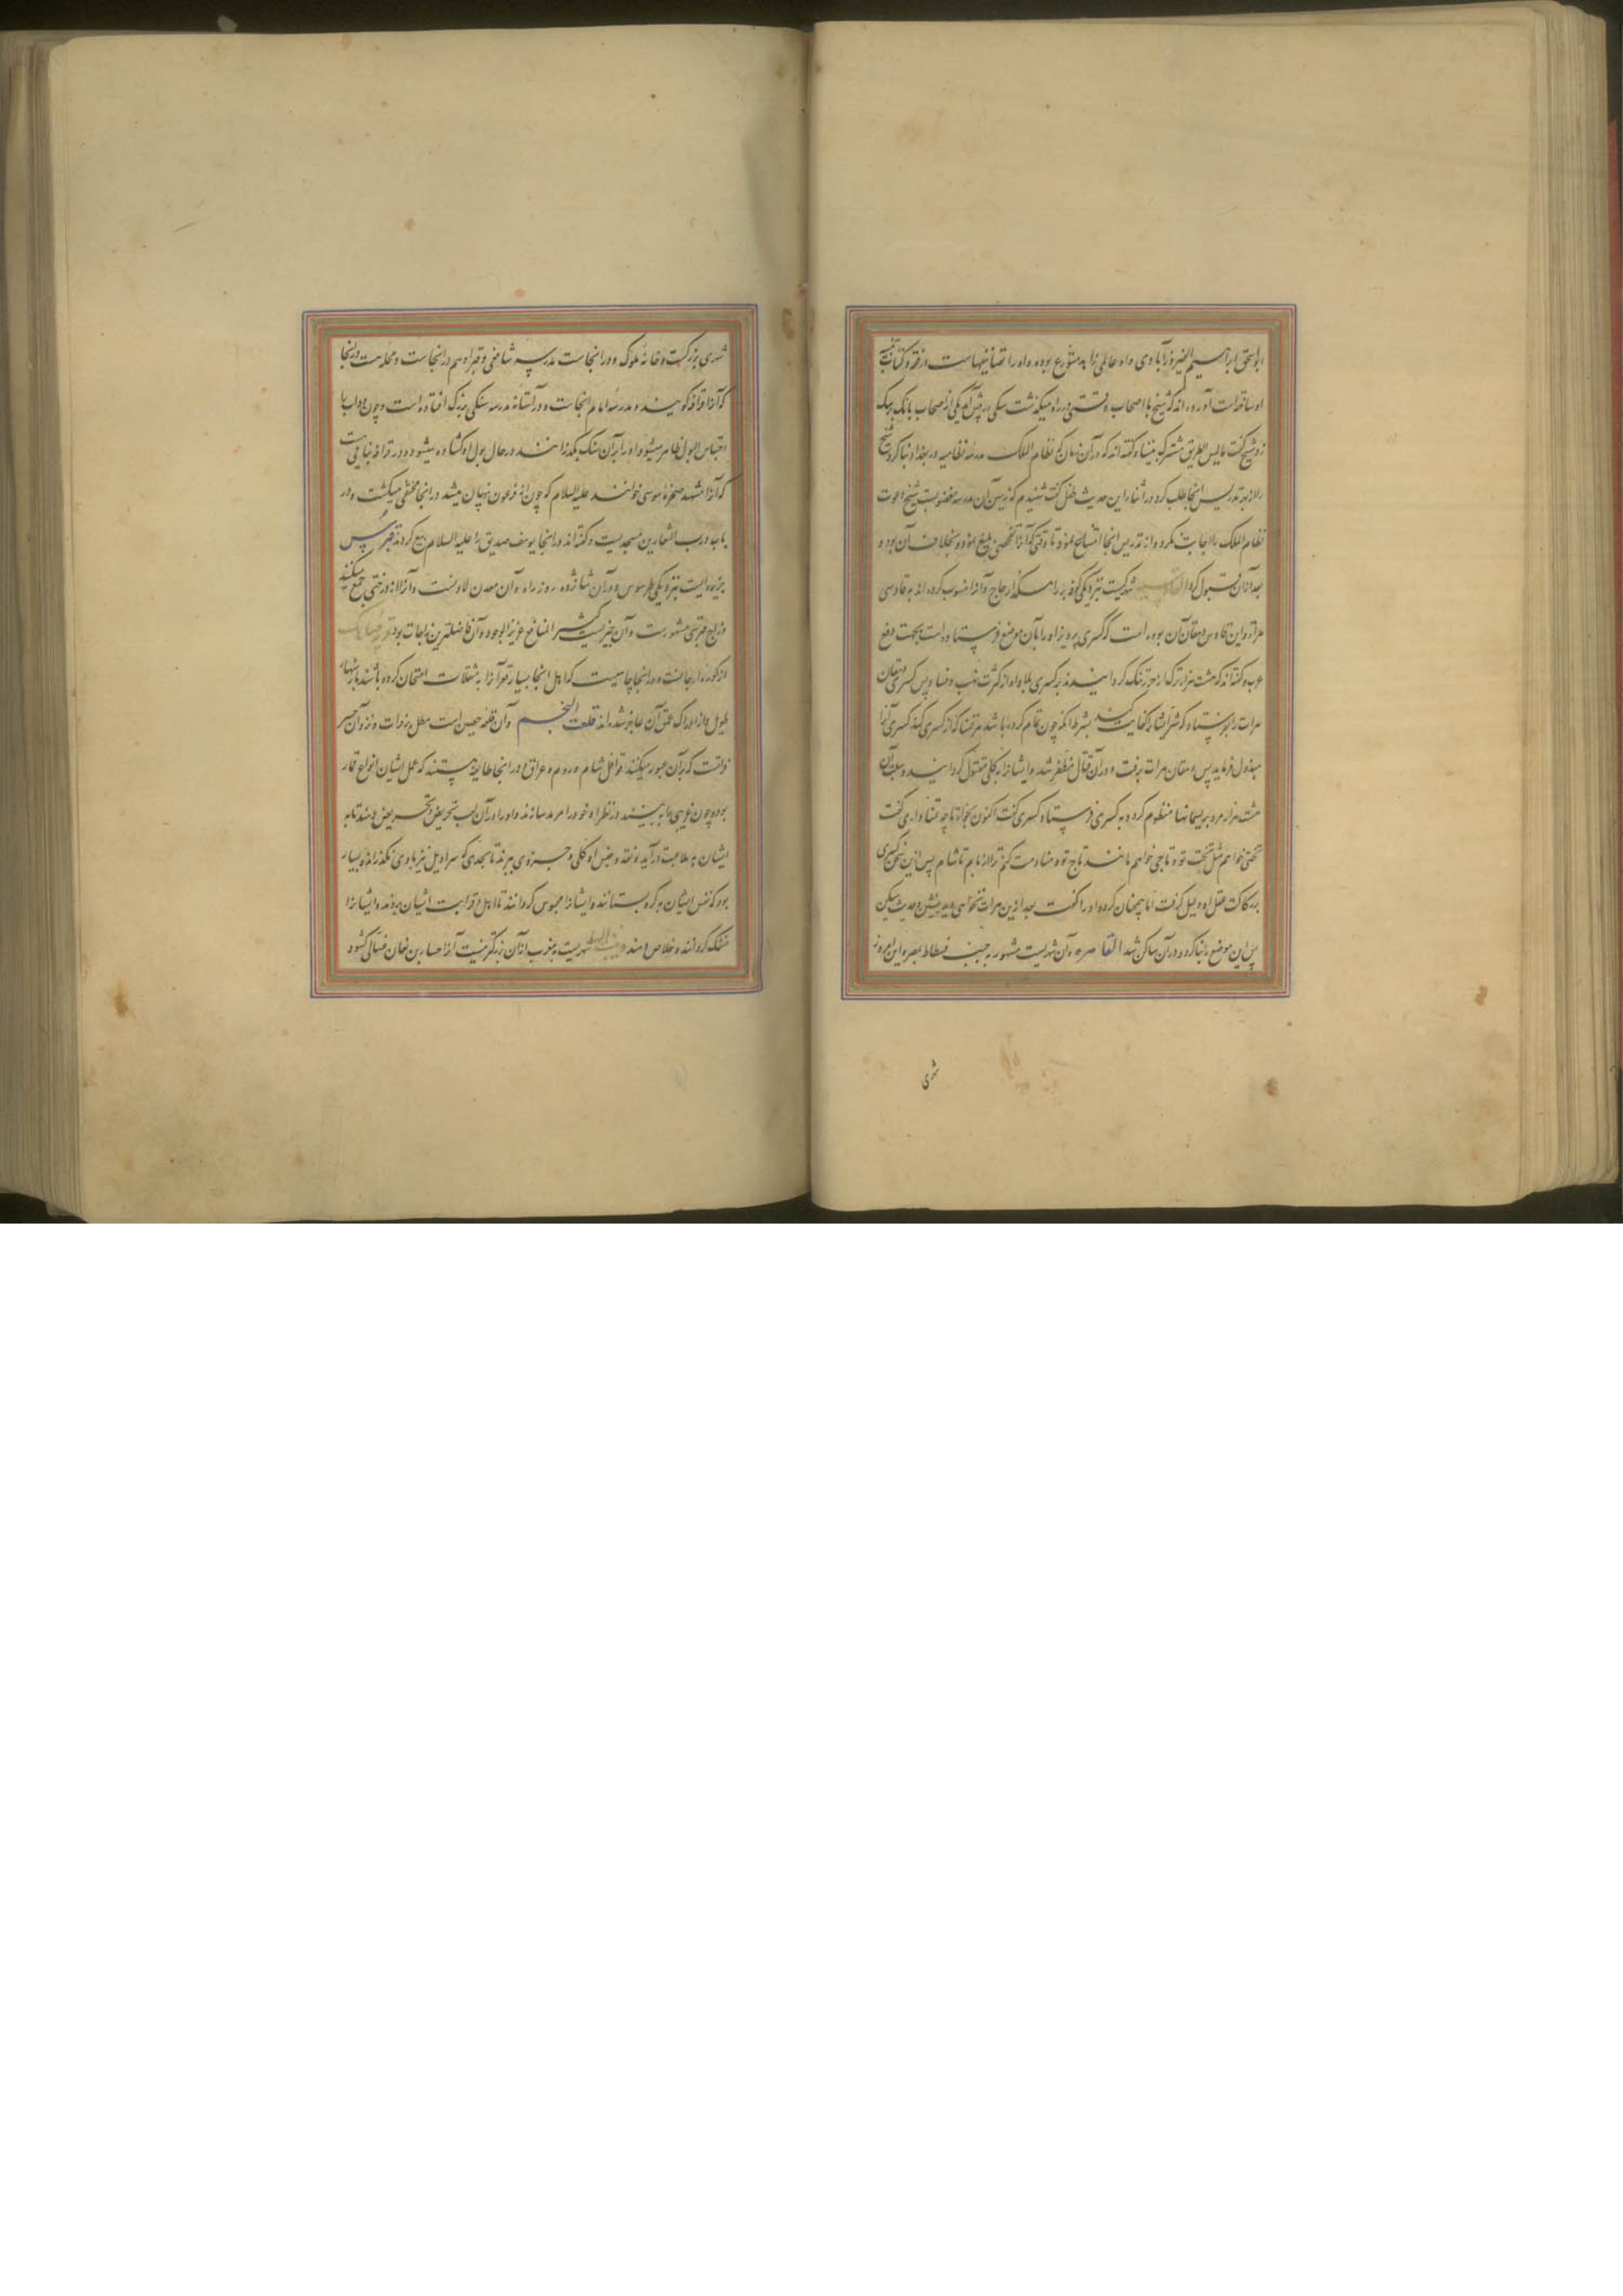 ابواسحق ابراهیم الفیروزآبادی واو عالمی زاهد متورع بوده و او را تصانیفهاست در فقه و کتاب تنبیه
از ... است آورده اند که شیخ با اصحاب وقتی در راه میگذشت سکی در پیش آمد یکی از اصحاب بانک بر سک
زد شیخ گفت مالیس الطریق مشترک بیننا و گفته اند که در آن زمان که نظام الملک مدرسه نظامیه در بغداد بنا کرد شیخ
را از بهر تدریس اینجا طلب کرد و در اثنا راین حدیث طفل گفت شنیدم که زمین آن مدرسه مغصوبست شیخ دعوت
نظام الملک را اجابت نکرد و از تدریس اینجا امتناع نمود تا وقتی که آنرا تفحصی بلیغ نمود و بخلاف آن بود و
بعد از آن قبول کرد القادسیه شهرکیست بنزدیکی کوفه بر رامسکذار حجاج و آنرا منسوب کرده اند به قادسی
هراة و این قادس دهقان آن بوده است که کسری پرویز او را بآن موضع فرستاده است بجهت دفع
عرب و گفته اند که هشت هزار ترک از حد ترنک کردانیدند بر کسری بلاد او از کثرت نهب و فساد پس کسری دهقان
هرات را بفرستاد که شر ایشانرا کفایت کند بشرط انکه چون تمام کرده باشد هر تمنا که از کسری کند کسری آنرا
مبذول فرماید پس دهقان هرات برفت و در آن قتال مظفر شد و ایشانرا بکلی مقتول کردانید و بعد آن
هشت هزار مرد بریسمانها منظوم کرد و به کسری فرستاد کسری گفت اکنون بخواه تا چه تمنا داری گفت
تختی خواهم مثل تخت تو و تاجی خواهم مانند تاج تو و منادمت کنم ترا از بام تا شام پس ازین سخن کسری
بر رکاکت عقل او دلیل گرفت اما همچنان کرد و او را گفت بعد ازین هرات نخواهی دید بنشین و حدیث میکن
پس این موضع را بنا کرد و در آن ساکن شد القاهره و آن شهریست مشهور به جنب فسطاط بمصر و این امروز
شهری
شهری بزرکست و خانهٔ ملوک و در انجاست مدرسه شافعی و قبر او هم در انجاست و محله است در اینجا
که آنرا قرافه کویند و مدرسهٔ امام انجاست و در آستانهٔ مدرسه سنکی بزرک افتاده است و چون دواب را
احتباس البول ظاهر میشود او را بر آن سنک بگذرانند در حال بول او کشاده میشود و در قرافه بنایی است
که آنرا مشهد صخرهٔ موسی خوانند علیه السلام که چون از فرعون پنهان میشد در انجا مختفی میکشت و در
باب درب الشعارین مسجدیست و گفته اند در انجا یوسف صدیق را علیه السلام بیع کردند قبرس
جزیره ایست بنزدیکی طرسوس و در آن شانزده روزه راه و آن معدن لادنست و آنرا از درختی جمع میکنند
و زاج قبرسی مشهورست و آن چیزیست کثیر المنافع عزیز الوجود و آن فاضلترین زاجات بود
از کوره ارجانست و در اینجا چاهیست که اهل انجا بسیار قعر آنرا به مثقلات امتحان کرده باشند باریسمانهاء
طویل و از ادراک عمق آن عاجز شده اند قلعت النجم و آن قلعه حصین است مطل بر فرات و نزد آن جسر
فراتست که بر آن عبور میکنند قوافل شام و روم و عراق و در انجا طایفه هستند که عمل ایشان انواع قمار
بوده چون غریبی را به بینند در نظر او خود را مر مد سازند و او را در آن لعب تحریض و تحریص دهند تا به
ایشان به ملاعبت درآید و نقد و جنس او کلی و جزوی ببرند تا بحدی که سراویل نیز با وی نکذارند و بسیار
بود که نفس ایشان به کرو بستانند و ایشانرا محبوس کردانند تا اهل و قرابت ایشان بیاید و ایشانرا
منفک کردانند و خلاص دهند قیروان شهریست بمغرب از آن بزرکتر نیست آنرا حسان بن نعمان غسانی کشود